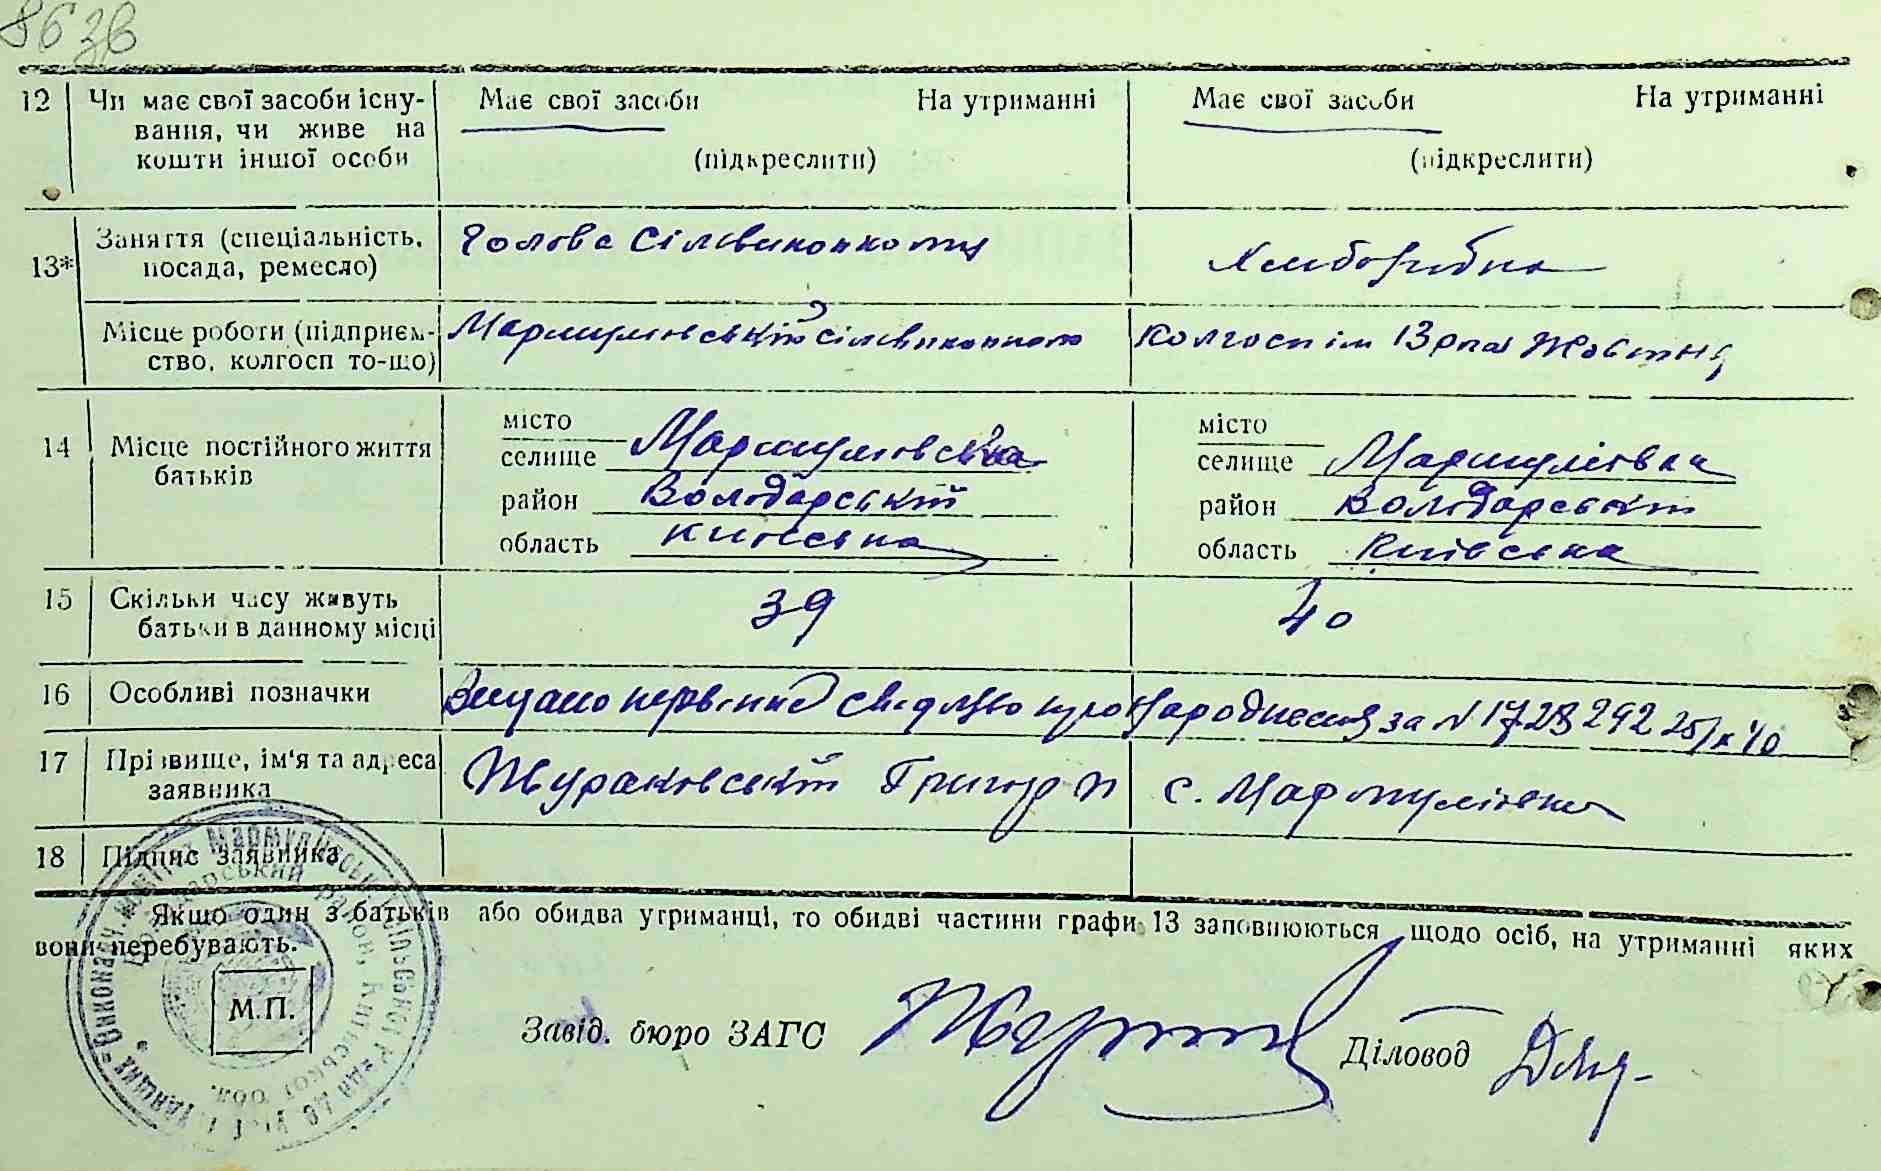 12 Чи має свої засоби існу- Має свої засоби На утриманні Має свої засоби На утриманні
вання, чи живе на
кошти іншої особи (підкреслити) (підкреслити)
13* Заняття (спеціальність, Голова Сільвиконкому Хліборобка
посада, ремесло)
Місце роботи (підприєм- Мармуліївський сільвиконком Колгосп ім 13 річч Жовтня
ство, колгосп то-що)
місто місто
14 Місце постійного життя селище Мармуліївка селище Мармуліївка
батьків район Володарський район Володарський
область Київська область Київська
15 Скільки часу живуть 39 40
батьки в данному місці
16 Особливі позначки Видано первинне свідоцтво про народження за N 1728292 25/X 40
17 Прізвище, ім'я та адреса Жураковський Григор П с. Мармуліївка
заявника
18 Підпис заявника
Якщо один з батьків або обидва утриманці, то обидві частини графи 13 заповнюються щодо осіб, на утриманні яких
вони перебувають.
М.П.
Завід. бюро ЗАГС Діловод